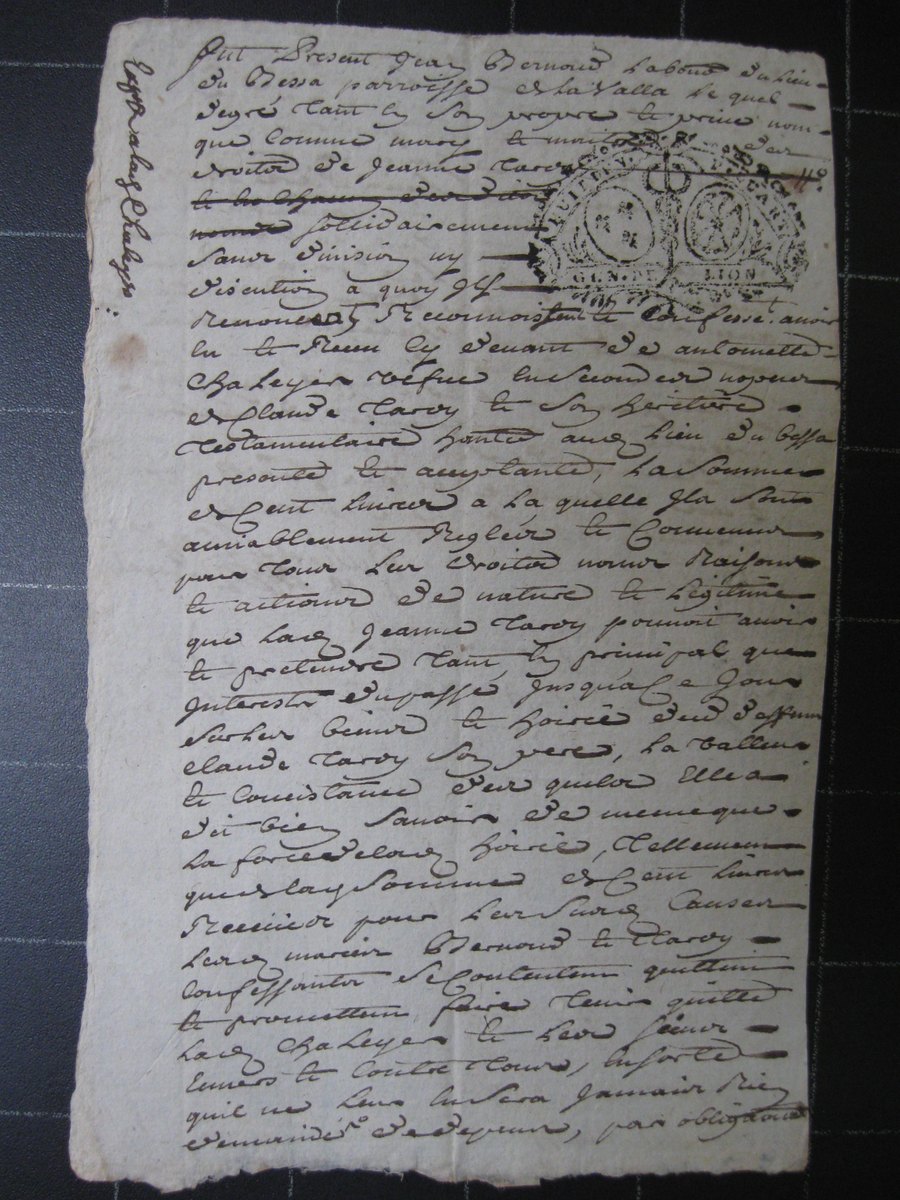 Expédié a lad Chaleyer
Fut Present Jean Bernoud Laboureur du lieu
du Bessa parroisse de La Valla Le quel
degré tant en Son propre et privé nom
que comme mary et maitre des
droitds de Jeanne Tardy
sollidairement
Sans division ny
discution a quoy Ils
GEN. DE LION
Renoncent Reconnoissent et Confessent avoir
Eu et Receu Cy devant de antoinette
Chaleyer vefue En Secondes nopces
de Claude Tardy et Son heretiere
Testamentaire dud Lieu du bessa
presente et acceptante, La Somme
de Cent Livres a La quelle Ils Sont
amiablement Regléés et Convenus
pour Tous Les droitds noms Raisons
et actions de nature et Legitime
que Lad Jeanne Tardy pouvoit avoir
et pretendre Tant En principal que
Interestz du passé Jusqu'a Ce Jour
Sur Les biens et hoirie dud deffunt
Claude Tardy Son pere, La valleur
et Consistance des quels Elle a
dit bien Savoir de meme que
La force de lad hoirie, Tellement
que de lad Somme de Cent Livres
Receües pour Les Susd Causes
Lesd mariés Bernoud et Tardy
Confessants Se Contentent quittent
et promettent faire Tenir quitte
Lad Chaleyer et Les Siens
Envers et Contre Tous, En sorte
quil ne Leur En Sera Jamais Rien
demandé de depens, par obligations